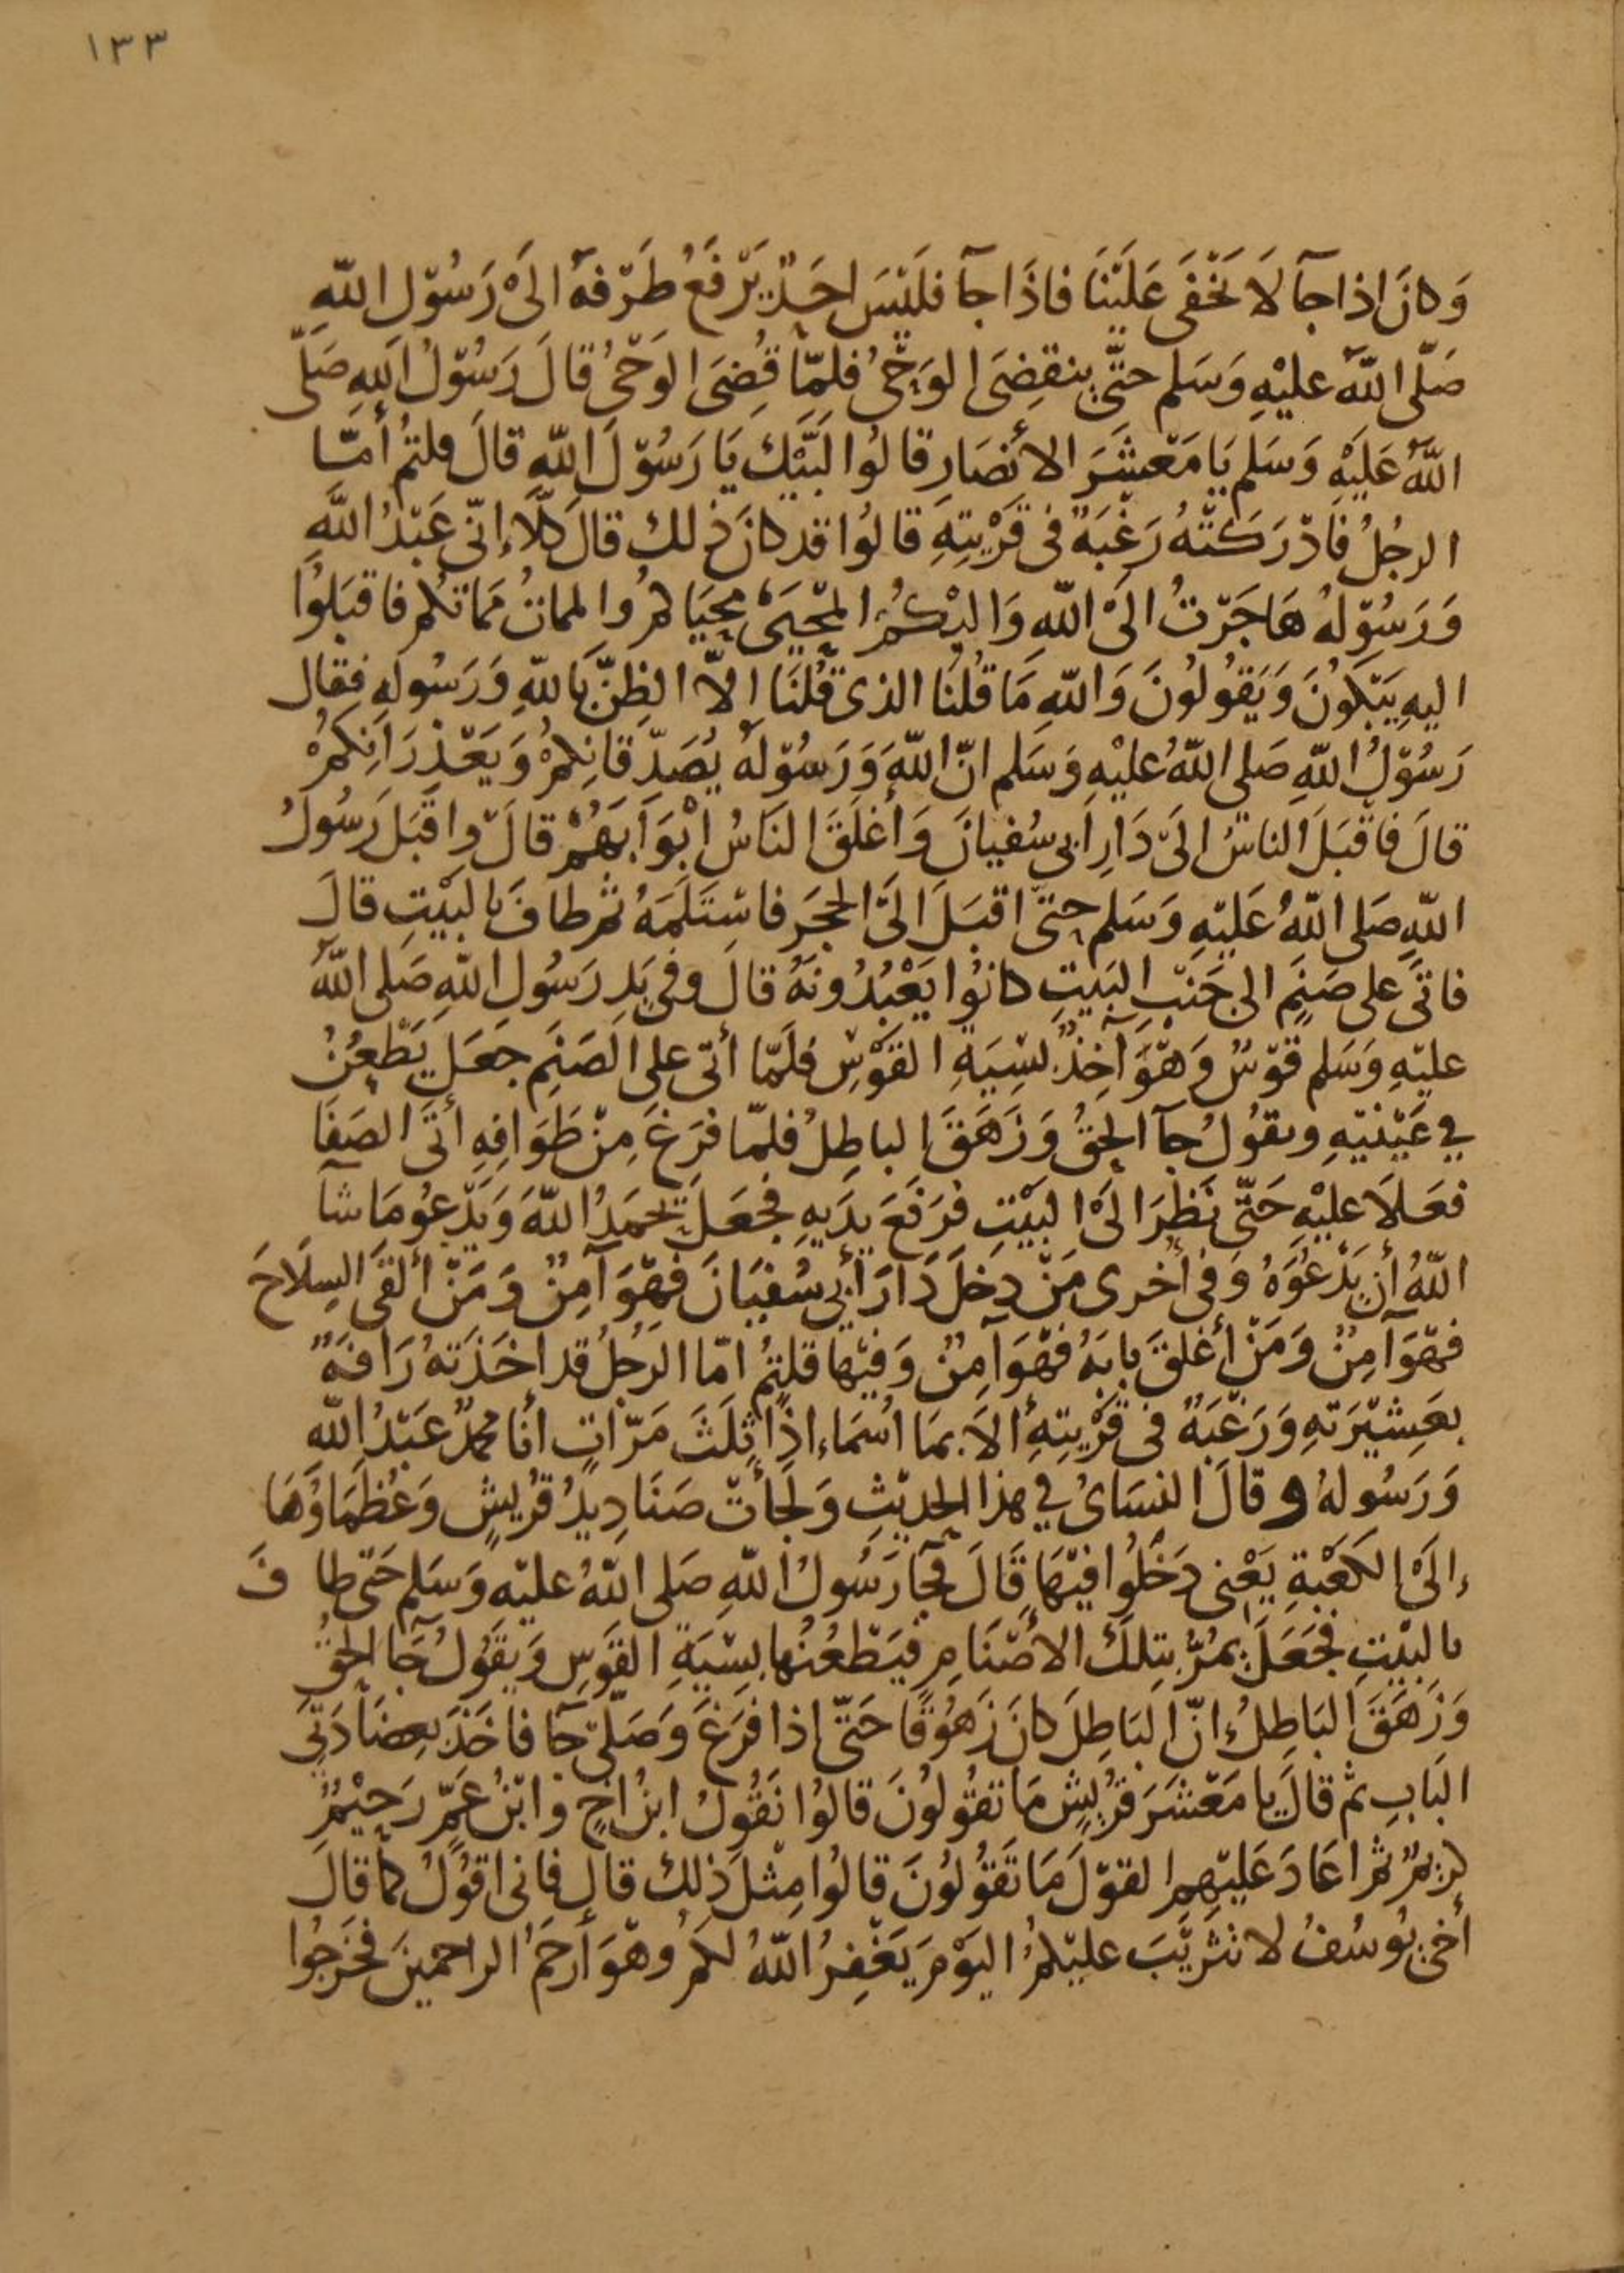 ١٣٣
وَكانَ اذا جآ لَا تَخْفَى عَلَيْنَا فاذَا جآ فلَيْسَ احَدٌ يَرْفَعُ طَرْفهُ الىَ رَسُوْل اللّهِ
صَلّى اللّهُ عليْهِ وَسَلم حتَّى ينقضِىَ الوَحْىُ فلمّا قُضِىَ الوَحْىُ قالَ رَسُوْلُ اللهِ صَلّى
اللّهُ عَلَيْهِ وَسَلم يَا مَعْشَرَ الأنصَارِ قالوُا لَبَّيْكَ يَا رَسُوْلَ اللّهِ قالَ قلتمُ أمّا
الرجُلُ فَادْرَكَتْهُ رَغْبَةٌ فى قَرْيتِهِ قالوُا قد كانَ ذلك قالَ كلّاءِ إنّى عَبْدُ اللّهِ
وَرَسُوْلهُ هَاجَرْتُ الىَ اللّهِ وَاليْكُمُ المَحْيَىْ مَحْيَاكمُ والمماتُ مَماتكم فاقبَلوُا
اليهِ يَبْكوُنَ وَيَقوُلوُنَ وَاللّهِ مَا قُلنا الذى قُلنَا الاّ الظِنَّ باللّهِ وَرَسُوله فقال
رَسُوْلُ اللّهِ صَلى اللّهُ عليْهِ وَسَلم انّ اللّهَ وَرَسُوْلهُ يُصَدّقانِكمُ وَيَعْذِرَانِكمُ
قالَ فاقْبَلَ الناسُ الىَ دَارِ ابى سُفيانَ وَأغلَقَ النَاسُ ابْوَابَهُمْ قالَ واقبَل رَسُولُ
اللّهِ صَلى اللّهُ عَليْهِ وَسَلم حتىّ اقبَلَ الىَ الحجَر فاسْتَلَمَهُ ثم طافَ بالبَيْتِ قالَ
فاتىَ على صَنَمٍ الى جَنْبِ البَيتِ كانوُا يَعْبُدُونهُ قالَ وفى يَدِ رَسُولِ اللّهِ صَلى اللّهُ
عليْهِ وَسَلم قوْسٌ وَهْوَ آخِذٌ بِسِيَةِ القوْسِ فلَمّا أتى على الصَنَمِ جعَل يَطْعِنُ
في عَيْنيْهِ ويقوُلُ جآ الحقُ وَزَهَقَ الباطِلُ فلمّا فرَغَ مِنْ طَوَافِهِ أتىَ الصَفَا
فعَلاَ عليْهِ حَتّى نَظرَ الىَ البيْتِ فرَفعَ يدَيهِ فجعَلَ يحمَدُ اللّهَ وَيَدْعوُ مَا شآ
اللّهُ أن يَدْعُوَهُ وَفى أخرى مَنْ دخلَ دَارَ أبى سُفيَانَ فهْوَ آمِنٌ وَمَنْ ألقىَ السِلَاحَ
فهْوَ آمِنٌ وَمَنْ أغلقَ بابَهُ فهْوَ آمِنٌ وَفيْها قلتمُ امّا الرَجُلُ قد اخَذَتهُ رَافةٌ
بعَشِيْرَتهِ وَرَغْبَةٌ فى قَرْيتِهِ ألاَ بمَا اسُمَاءِ اذًا ثلَثَ مَرّاتٍ أنا محمدٌ عَبْدُ اللّهِ
وَرَسُولهُ و قالَ النسَائُ في هذا الحدِيْثِ وَلجَأتْ صَنَادِيدُ قُريشٍ وَعُظمَاوُهَا
إلىَ الكعْبةِ يَعْنى دَخلوُا فيْهَا قالَ فجآ رَسُولُ اللّهِ صَلى اللّهُ عليْه وَسَلم حَتىّ طافَ
بالبيْتِ فجَعَلَ يمُرُّ بتِلكَ الأصْنَامِ فيَطعُنُها بسِيَةِ القوَسِ وَيقَوُلُ جَآ الحقُ
وَزَهَقَ البَاطِلُ انّ البَاطِلَ كانَ زَهوُقًا حَتىّ اذا فرَغَ وَصَلّى جآ فاخَذَ بعضَادَتىَ
البَابِ ثم قالَ يا مَعْشَرَ قرُيشٍ مَا تقوُلوُنَ قالوُا نقوُلُ ابنُ اخٍ وَابْنُ عَمٍّ رَحِيْمٌ
كريمٌ ثم اعَادَ عَليْهِمِ القوْلَ مَا تَقوُلوُنَ قالوُا مِثلَ ذلِكَ قالَ فانى اقوُلُ كمَا قالَ
أخى يوُسُفُ لا تثرِيْبَ عليْكمُ اليوْمَ يَغْفِرُ اللّهُ لكمُ وهْوَ أرحَمُ الراحمينَ فخرَجوُا